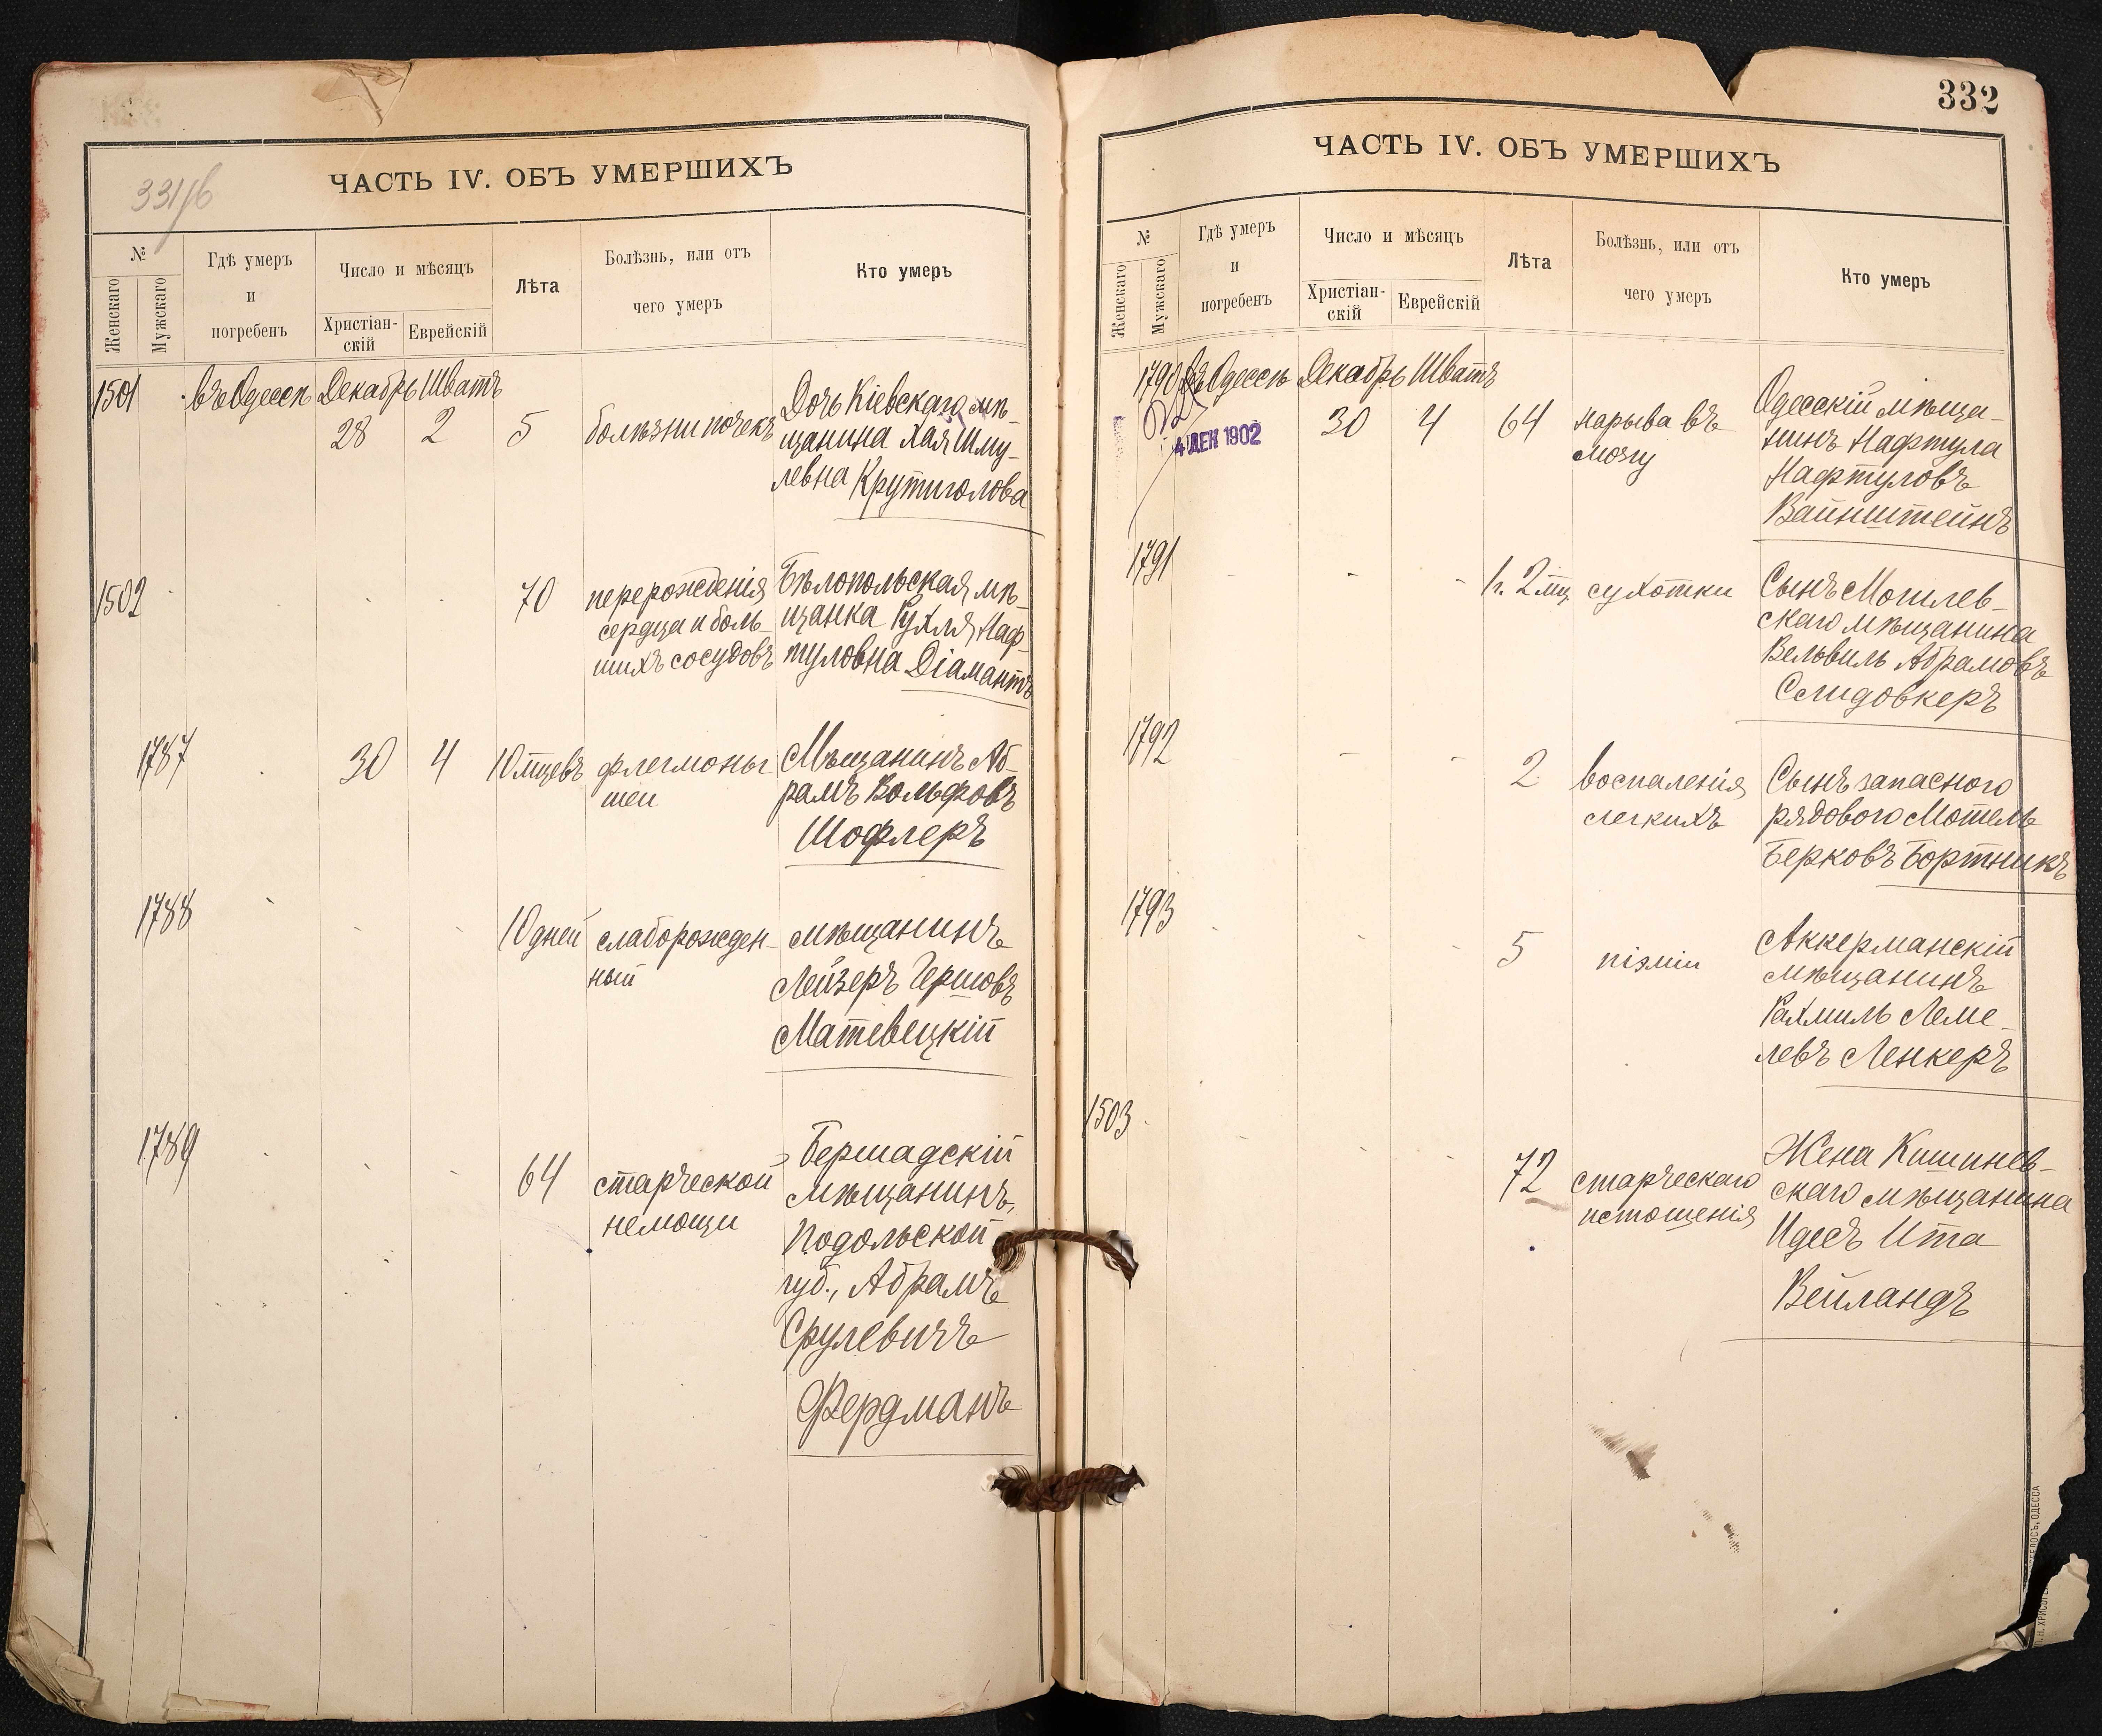 331/б
ЧАСТЬ IV. ОБЪ УМЕРШИХЪ
№
Женскаго
Мужскаго
Гдѣ умеръ
и
погребенъ
Число и мѣсяцъ
Христіан-
скій
Еврейскій
Лѣта
Болѣзнь, или отъ
чего умеръ
Кто умеръ
1501
въ Одессѣ
Декабрь
28
Шватъ
2
5
болѣзни почекъ
Дочь Кіевскаго мѣ-
щанина Хая Шму-
левна Крутиголова
1502
70
перерожденія
сердца и боль
шихъ сосудовъ
Бѣлопольская мѣ-
щанка Рухля Наф
туловна Діамантъ
1787
30
4
10 мцевъ
флегмоны
шеи
Мѣщанинъ Аб-
рамъ Вольфовъ
Шофлеръ
1788
10 дней
слаборожден-
ный
мѣщанинъ
Лейзеръ Гершовъ
Матевецкій
1789
64
старческой
немощи
Бершадскій
мѣщанинъ,
Подольской
губ., Абрамъ
Срулевичъ
Фердманъ
332
ЧАСТЬ IV. ОБЪ УМЕРШИХЪ
№
Женскаго
Мужскаго
Гдѣ умеръ
и
погребенъ
Число и мѣсяцъ
Христіан-
скій
Еврейскій
Лѣта
Болѣзнь, или отъ
чего умеръ
Кто умеръ
1790
въ Одессѣ
4 ДЕК 1902
Декабрь
30
Шватъ
4
64
нарыва въ
мозгу
Одесскій мѣща-
нинъ Нафтула
Нафтуловъ
Вайнштейнъ
1791
1 г. 2 мц
сухотки
Сынъ Могилев-
скаго мѣщанина
Вельвиль Абрамовъ
Слидовкеръ
1792
2
воспаленія
легкихъ
Сынъ запаснаго
рядового Мотель
Берковъ Бортникъ
1793
5
піэміи
Аккерманскій
мѣщанинъ
Рахмиль Леме-
левъ Ленкеръ
1503
72
старческаго
истощенія
Жена Кишинев-
скаго мѣщанина
Идесъ Ита
Вейландъ